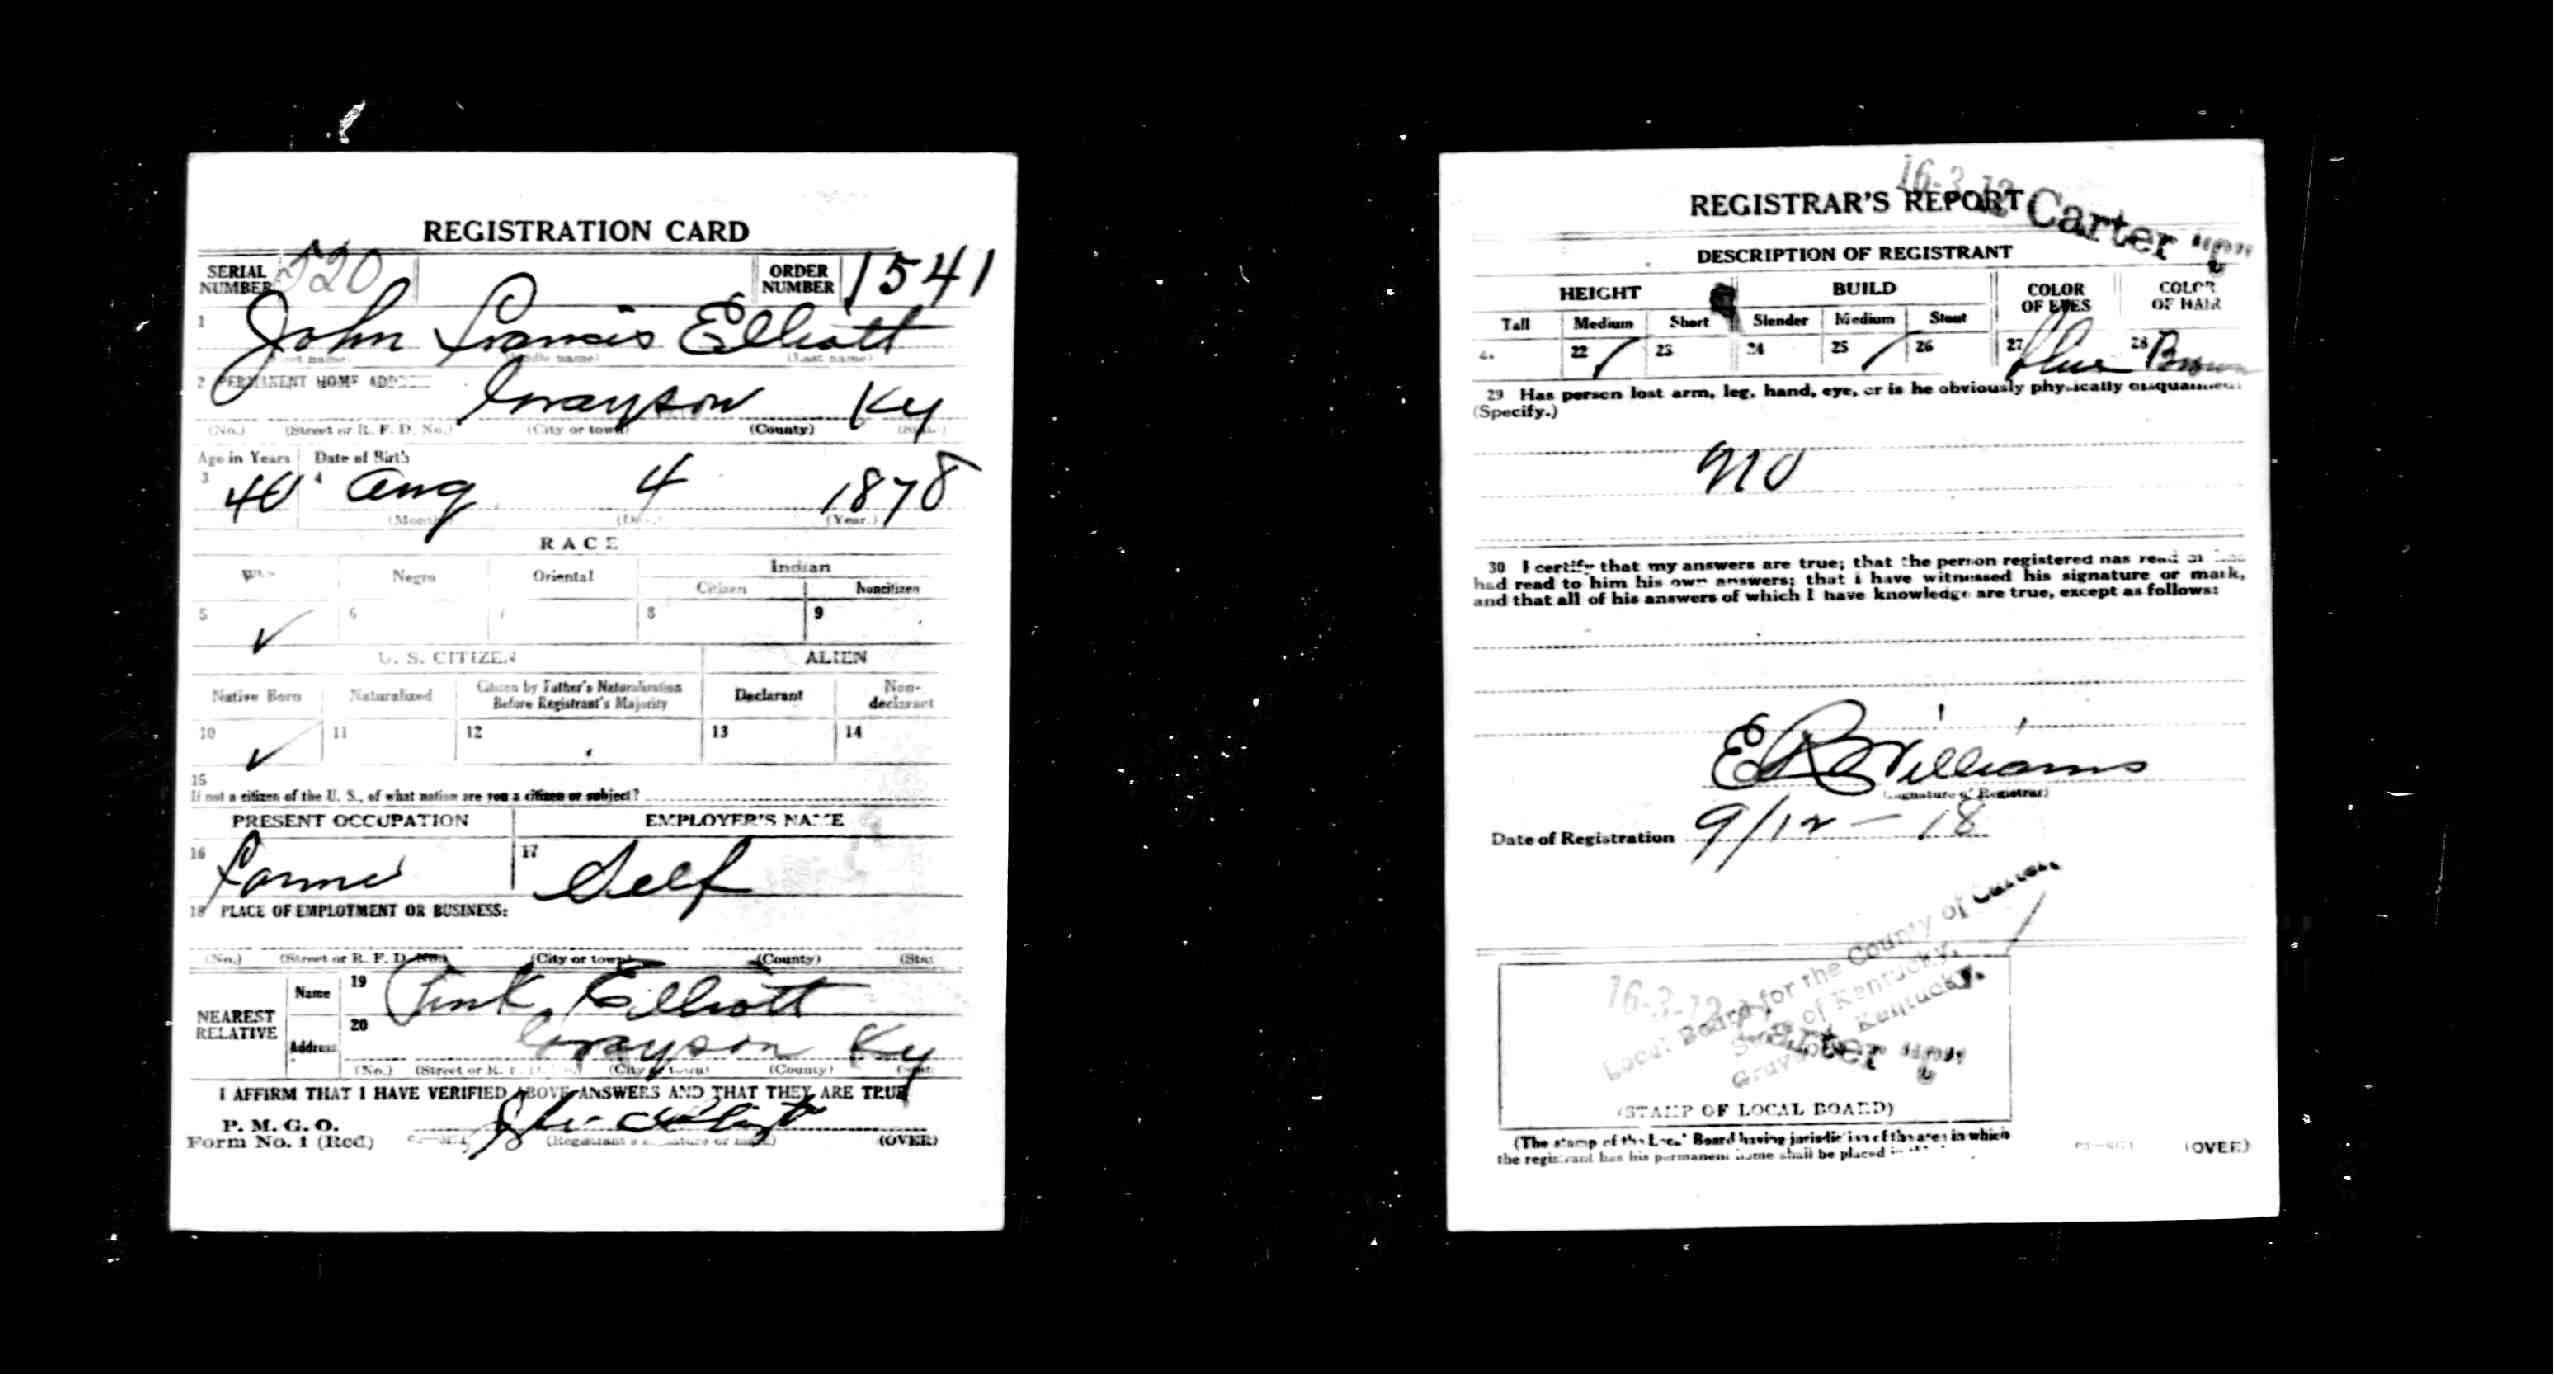 REGISTRATION CARD
SERIAL NUMBER 520 ORDER NUMBER 1541
1 John Francis Elliott
(First name) (Middle name) (Last name)
2 PERMANENT HOME ADDRESS
Grayson Ky
(No.) (Street or R. F. D. No.) (City or town) (County) (State)
Age in Years Date of Birth
3 40 4 Aug 4 1878
(Month) (Day) (Year.)
RACE
White Negro Oriental Indian
Citizen Noncitizen
5 ✓ 6 7 8 9
U. S. CITIZEN ALIEN
Native Born Naturalized Citizen by Father's Naturalization Before Registrant's Majority Declarant Non-declarant
10 ✓ 11 12 13 14
15
If not a citizen of the U. S., of what nation are you a citizen or subject?
PRESENT OCCUPATION EMPLOYER'S NAME
16 Farmer 17 Self
18 PLACE OF EMPLOYMENT OR BUSINESS:
(No.) (Street or R. F. D. No.) (City or town) (County) (State)
NEAREST RELATIVE Name 19 Elliott
Address 20 Grayson Ky
(No.) (Street or R. F. D. No.) (City or town) (County) (State)
I AFFIRM THAT I HAVE VERIFIED ABOVE ANSWERS AND THAT THEY ARE TRUE
P. M. G. O.
Form No. 1 (Red) (Registrant's signature or mark) (OVER)
16-3-12
REGISTRAR'S REPORT Carter "C"
DESCRIPTION OF REGISTRANT
HEIGHT BUILD COLOR OF EYES COLOR OF HAIR
Tall Medium Short Slender Medium Stout
21 22 / 23 24 25 / 26 27 Blue 28 Brown
29 Has person lost arm, leg, hand, eye, or is he obviously physically disqualified?
(Specify.)
No
30 I certify that my answers are true; that the person registered has read or has
had read to him his own answers; that I have witnessed his signature or mark,
and that all of his answers of which I have knowledge are true, except as follows:
Williams
(Signature of Registrar)
Date of Registration 9/12-18
Local Board for the County of Carter
State of Kentucky,
Grayson, Kentucky.
16-3-12
Carter
(STAMP OF LOCAL BOARD)
(The stamp of the Local Board having jurisdiction of the area in which
the registrant has his permanent home shall be placed in
(OVER)